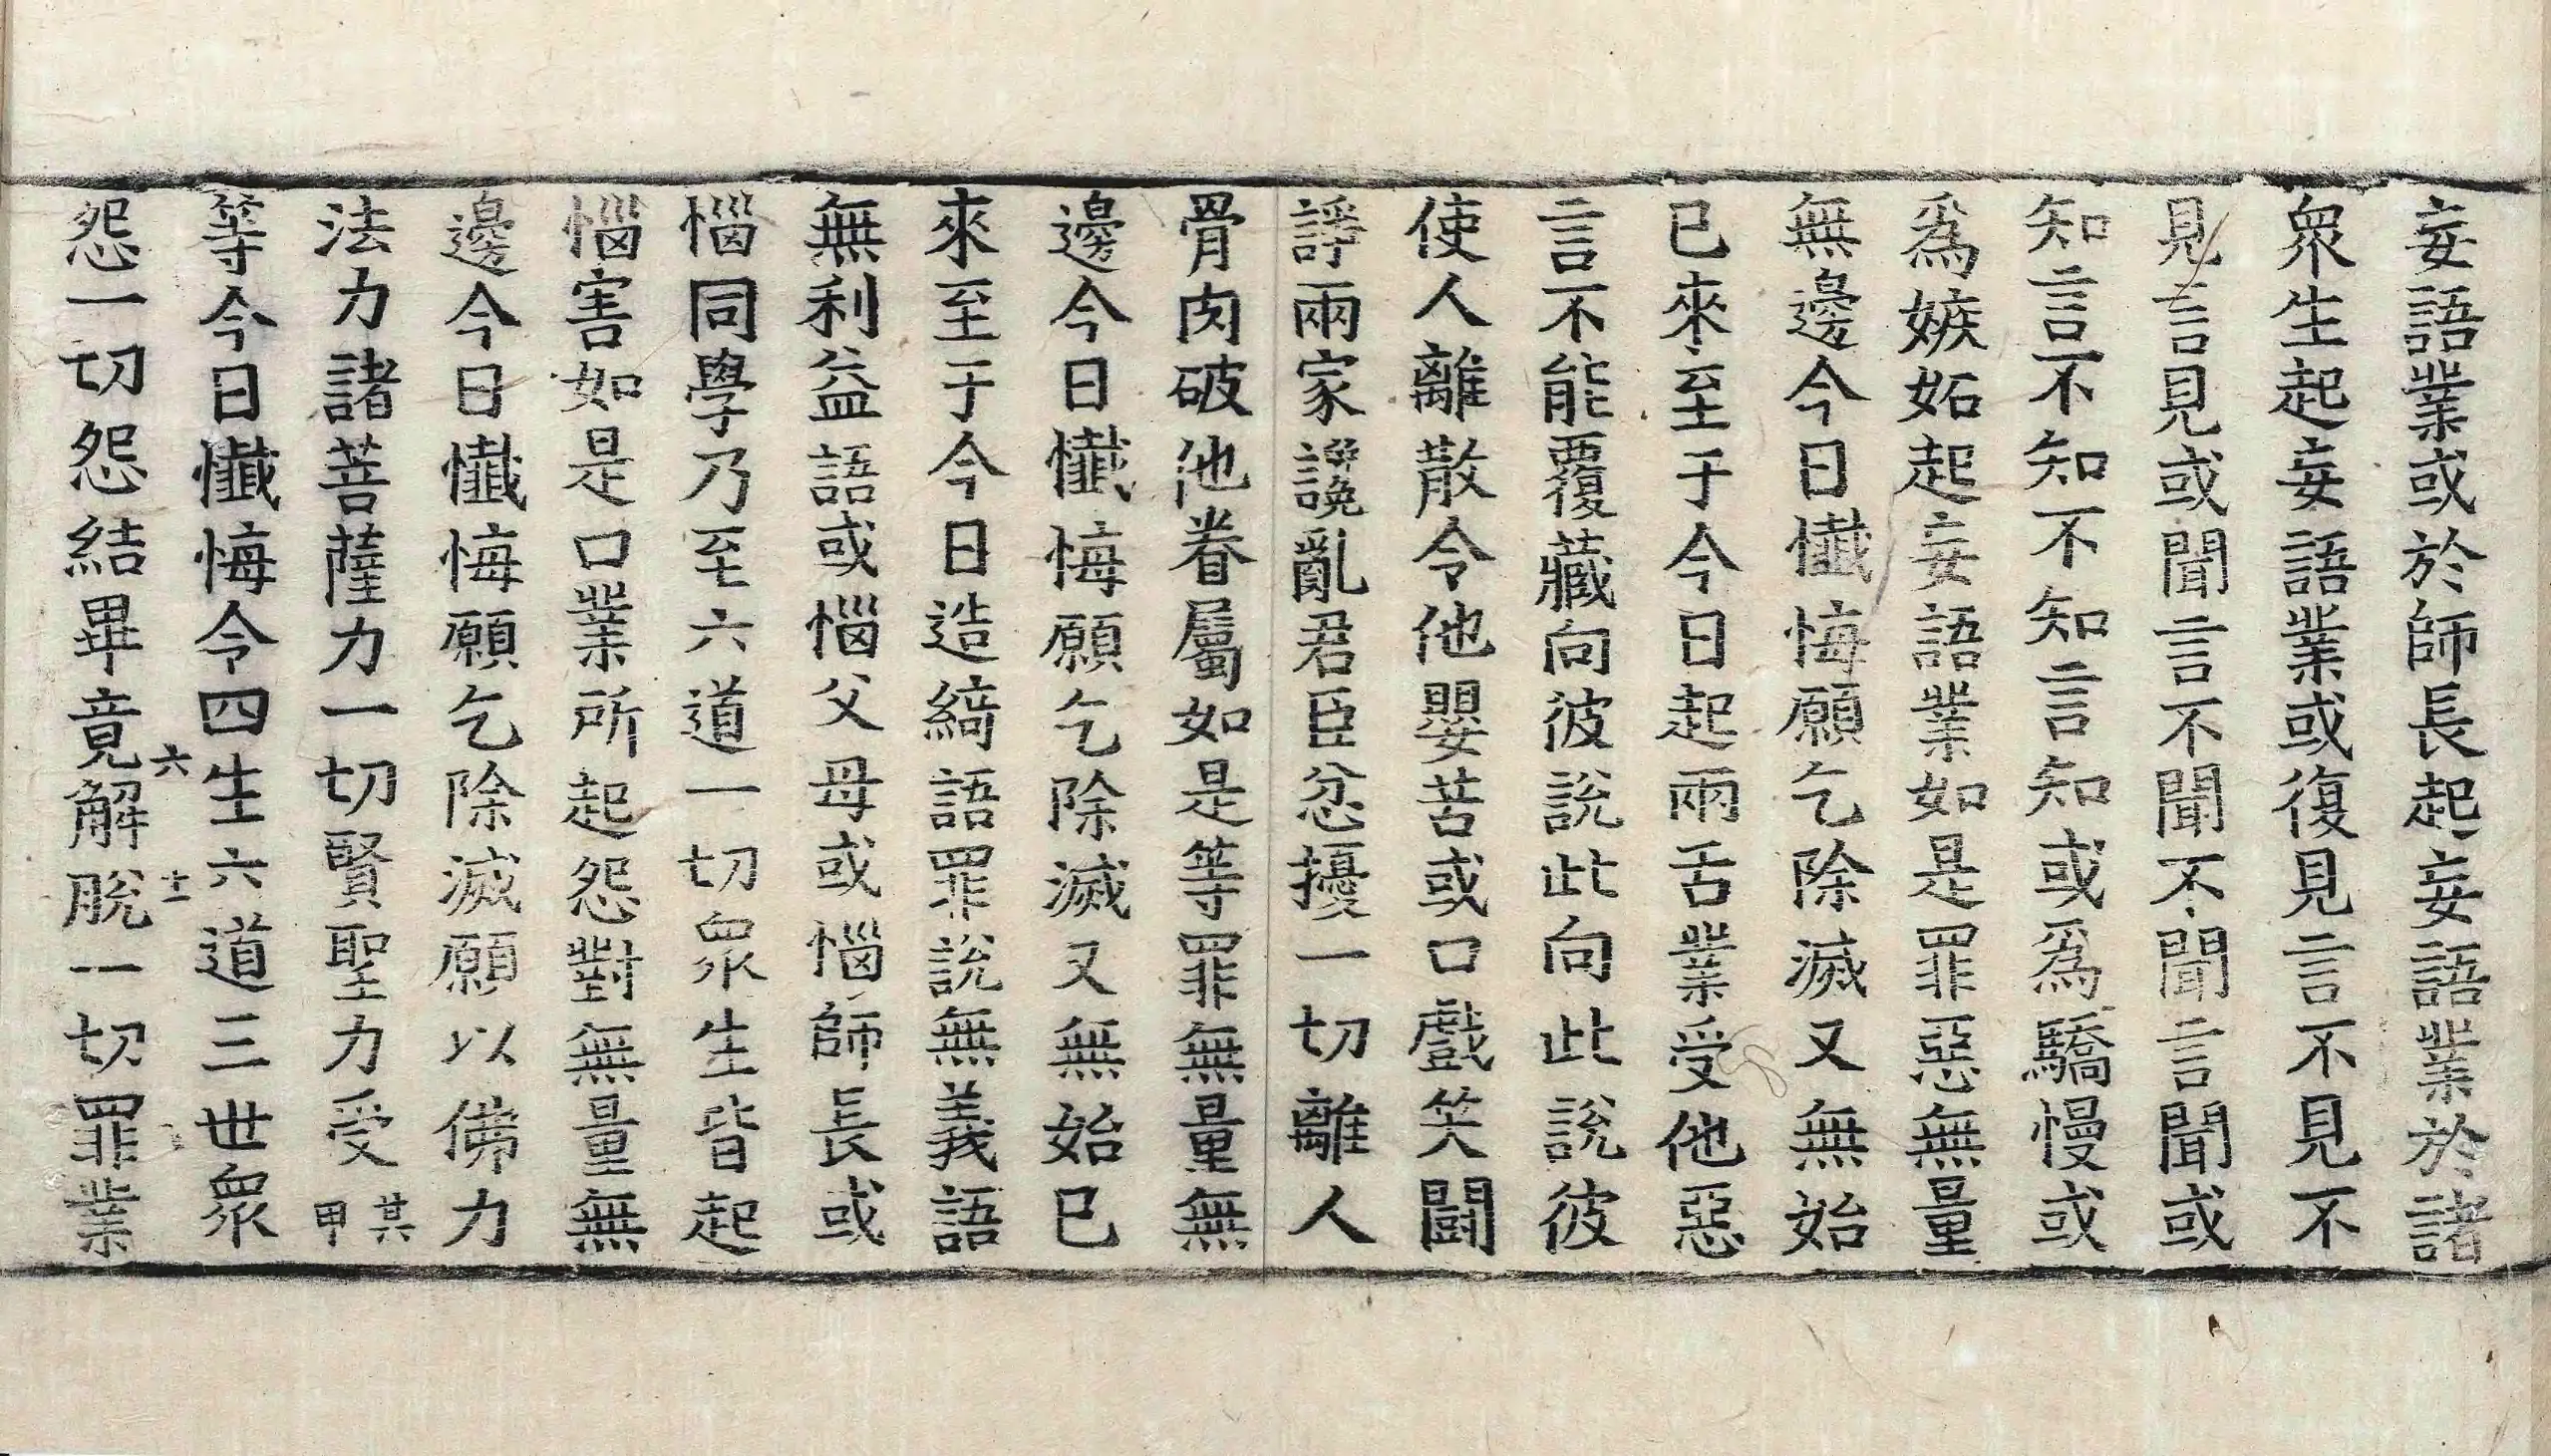 妄語業或於師長起妄語業於諸
衆生起妄語業或復見言不見不
見言見或聞言不聞不聞言聞或
知言不知不知言知或爲驕慢或
爲嫉妬起妄語業如是罪惡無量
無邊今日懺悔願乞除滅又無始
已來至于今日起兩舌業受他惡
言不能覆藏向彼說此向此說彼
使人離散令他嬰苦或口戲笑闘
諍兩家讒亂君臣忿擾一切離人
骨肉破他眷屬如是等罪無量無
邊今日懺悔願乞除滅又無始已
來至于今日造綺語罪說無義語
無利益語或惱父母或惱師長或
惱同學乃至六道一切衆生皆起
惱害如是口業所起怨對無量無
邊今日懺悔願乞除滅願以佛力
法力諸菩薩力一切賢聖力受某甲
等今日懺悔令四生六道三世衆
六 十二
怨一切怨結畢竟解脫一切罪業